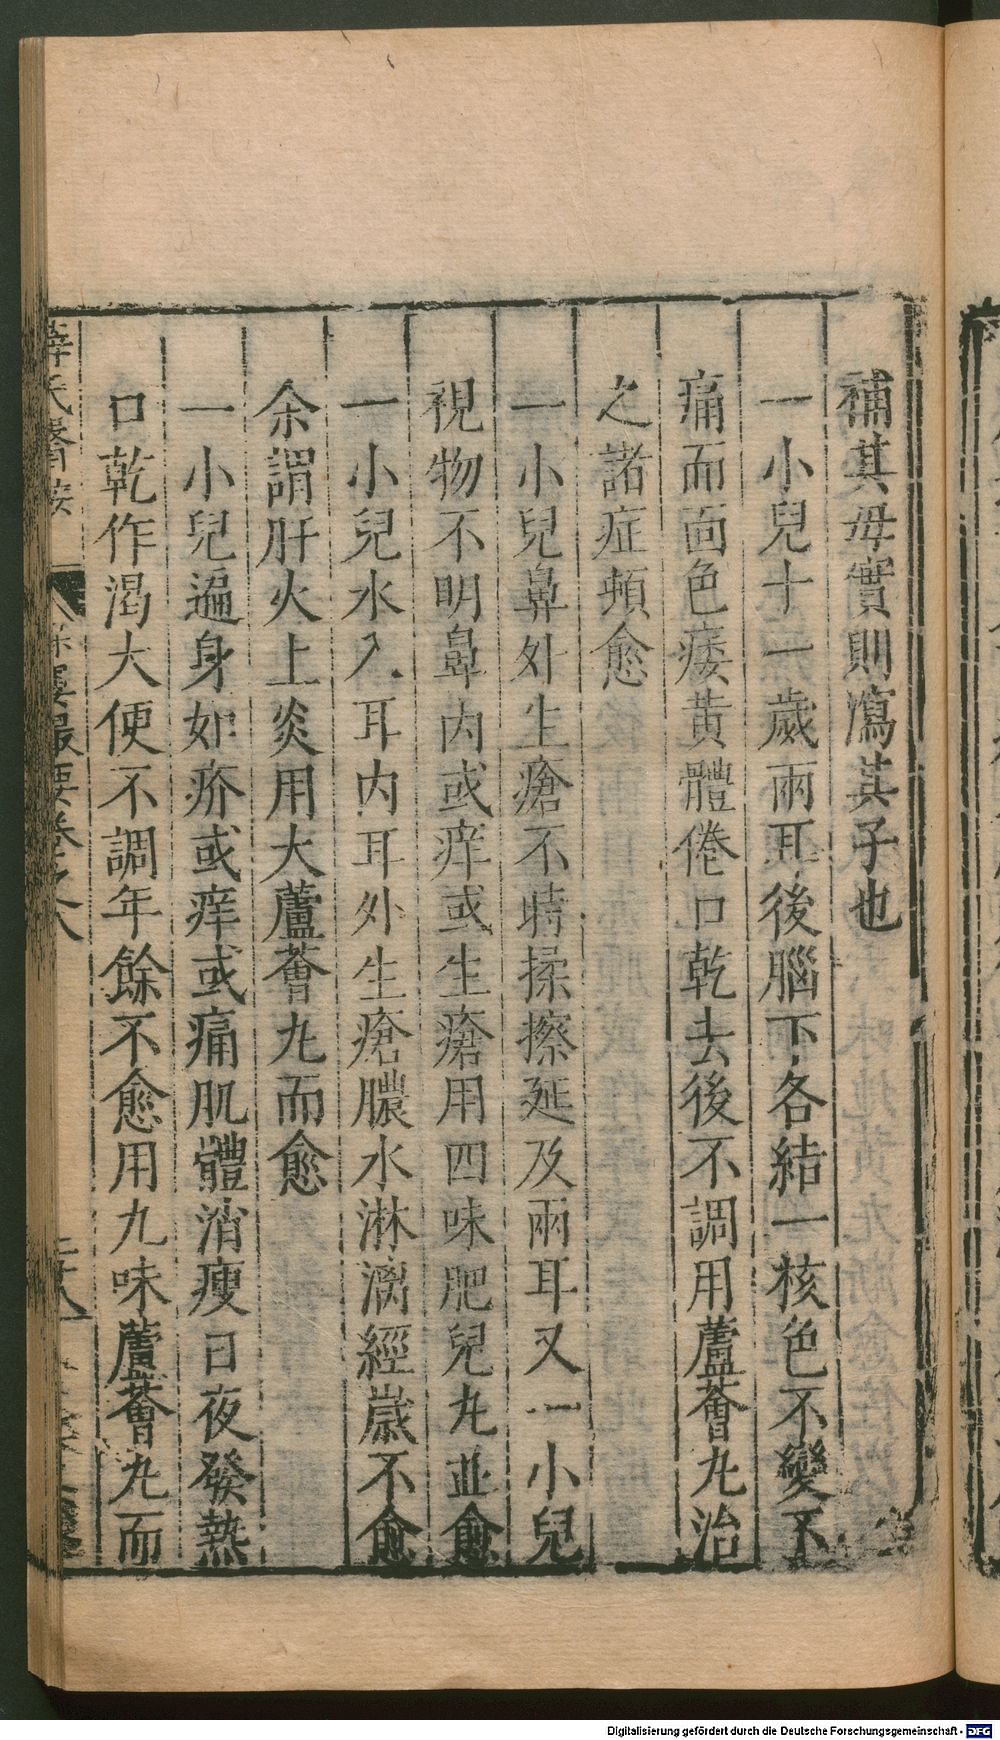 補其母實則瀉其子也
一小兒十一歲兩耳後腦下各結一核色不變不
痛而面色痿黃體倦口乾去後不調用蘆薈九治
之諸症頓愈
一小兒鼻外生瘡不時揉擦延及兩耳又一小兒
視物不明鼻内或痒或生瘡用四味肥兒九並愈
一小兒水入耳内耳外生瘡膿水淋漓經歲不愈
余謂肝火上炎用大蘆薈九而愈
一小兒遍身如疥或痒或痛肌體消瘦日夜發熱
口乾作渴大便不調年餘不愈用九味蘆薈九而
薛氏醫按 保嬰撮要卷之八
Digitalisierung gefördert durch die Deutsche Forschungsgemeinschaft - DFG